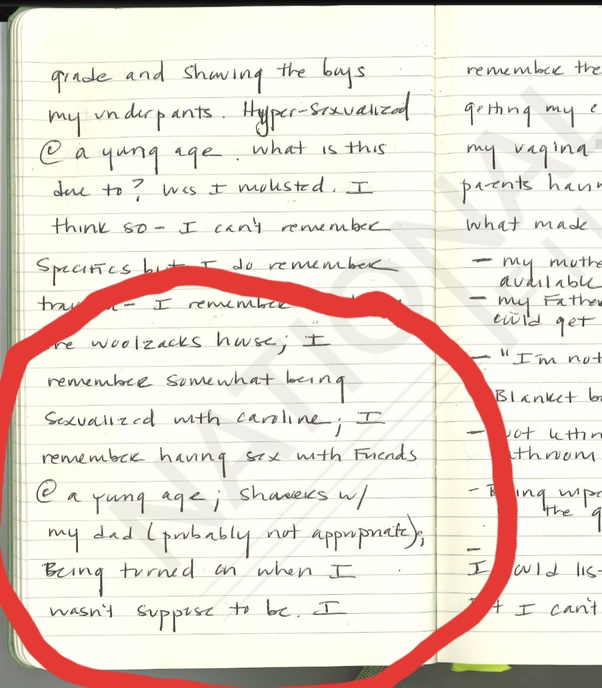 grade and showing the boys
my underpants. Hyper-sexualized
@ a yung age. what is this
due to? Was I molested. I
think so - I can't remember
specifics but I do remember
trau - I remember
re woolzacks house; I
remember somewhat being
sexualized with caroline; I
remember having sex with friends
@ a yung age; showers w/
my dad (probably not appropriate);
Being turned on when I
wasn't suppose to be. I
remember the
getting my
my vagina
parents hav
what made
- my mothe
available
- my Father
could get
- "I'm not
Blanket b
- 
throom
- ing
the
I ould lis-
t I can't
NATIONAL